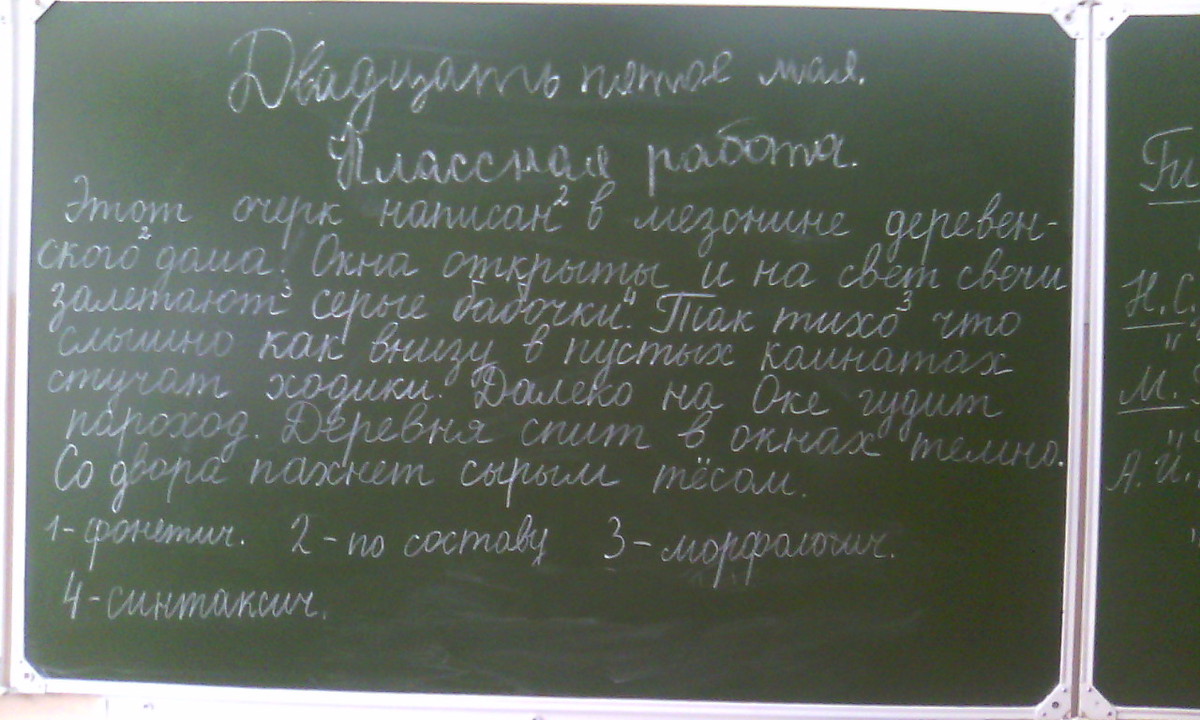 Двадцать пятое мая.
Классная работа.
Этот очерк написан² в мезонине деревен-
ского² дома. Окна открыты и на свет свечи
залетают³ серые бабочки⁴. Так тихо³ что
слышно как внизу в пустых комнатах
стучат ходики. Далеко на Оке гудит
пароход. Деревня спит в окнах темно.
Со двора пахнет сырым тёсом.
1-фонетич. 2-по составу 3-морфологич.
4-синтаксич.
Ги
Н.С.
М.
А.И.